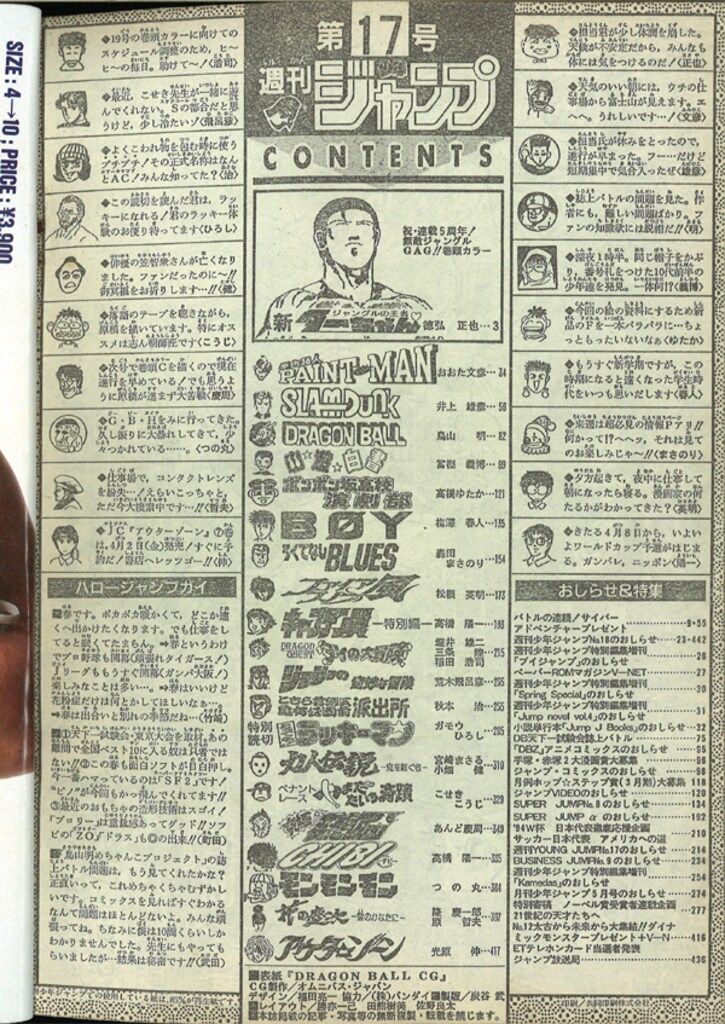 SIZE:4→10:PRICE:¥3,900
第17号
週刊
少年
ジャンプ
CONTENTS
◆19号の巻頭カラーに向けての
スケジュール調整のため、ヒ〜
ヒ〜の毎日。助けて〜!〈浩司〉
◆最近、こせき先生が一緒に遊
んでくれない。Sの都合だと思
うけど、少し冷たいゾ〈飛呂彦〉
◆よくこわれ物を包む時に使う
プチプチ!その正式名称はなん
とAC!みんな知ってた?〈治〉
◆この読切を読んだ君は、ラッ
キーになれる!君のラッキー体
験のお便り待ってます〈ひろし〉
◆俳優の笠智衆さんが亡くなり
ました。ファンだったのに〜!!
御冥福をお祈りします…〈健〉
◆落語のテープを聴きながら、
原稿を描いています。特にオス
スメは志ん朝師匠です〈こうじ〉
◆次号で巻頭Cを描くので現在
進行を早めている!でも思うよ
うに原稿が進まず大苦戦〈慶周〉
◆G・B・Hをみに行ってきた。
久し振りに大暴れしてきて、少
々つかれている……。〈つの丸〉
◆仕事場で、コンタクトレンズ
を紛失…!えらいこっちゃと、
ただ今大捜索中です…!!〈哲夫〉
◆JC『アウターゾーン』⑦巻
は、4月2日(金)発売!すぐに予
約だ!書店へレッツゴー!!〈伸〉
ハロージャンプガイ
■春です。ポカポカ暖かくて、どこか遠
くへ出かけたくなります。でも仕事をし
てると眠くてたまらん。➡春というわけ
でプロ野球も開幕(頑張れタイガース!)
Jリーグももうすぐ開幕(ガンバ大阪!)
楽しみなことは多い…。➡春はいいけど
花粉症だけは何とかしてほしいなぁ…
➡春は出合いと別れの季節だね…(竹崎)
■①天下一試合会・東京大会を取材。あの
難問で全国ベスト10に入る奴は只者では
ない!!②この春も面白ソフトが目白押し。
今一番ハマっているのは『SF2』です!
“ピノ”が今回もかっ飛んでくれてます!!
③最近のおもちゃの造形技術はスゴイ!
『ブロリー』は重量感あってグッド!!ソフ
ビの『ZO』『ドラス』も◎の出来!!(町田)
■『鳥山明めちゃんこプロジェクト』の誌
上バトル問題は、もう見てくれたかな?
正直いって、これめちゃくちゃむずかし
いです。コミックスを見ればすぐわかる
なんて問題はほとんどないよ。みんな頑
張ってね。ちなみに僕は10問くらいしか
わかりませんでした。先生にもやっても
らいましたが…結果は秘密です!!(武田)
祝・連載5周年!
無敵ジャングル
GAG!!巻頭カラー
新ジャングルの王者ターちゃん♡ 徳弘 正也…3
PAINT MAN おおた文彦…34
SLAM DUNK 井上 雄彦…56
DRAGON BALL 鳥山 明…82
幽☆遊☆白書 冨樫 義博…99
ボンボン坂高校演劇部 高橋ゆたか…121
BØY 梅澤 春人…135
ろくでなしBLUES 森田まさのり…154
ファイアスノーの風 松根 英明…177
キャプテン翼―特別編― 高橋 陽一…198
DRAGON QUEST ダイの大冒険 堀井 雄二 三条 陸 稲田 浩司…215
ジョジョの奇妙な冒険 荒木飛呂彦…235
こちら葛飾区亀有公園前派出所 秋本 治…255
特別読切 ラッキーマン ガモウひろし…285
人形草紙 あやつり左近
ペナントレース やまだたいちの奇蹟 こせきこうじ…329
あんど慶周…349
高橋 陽一…365
モンモンモン つの丸…384
花の慶次―雲のかなたに― 隆 慶一郎 原 哲夫…397
アウターゾーン 光原 伸…417
■表紙『DRAGON BALL CG』
CG製作/オムニバス・ジャパン
デザイン/福田高一 協力/(株)バンダイ■製版/炭谷 武
■レイアウト/勝亦一己 田熊樹美 佐野良太
■本誌掲載の記事・写真等の無断複製・転載を禁じます。
◆担当君が少し体調を崩した。
天候が不安定だから、みんなも
体には気をつけるのだ!〈正也〉
◆天気のいい朝には、ウチの仕
事場から富士山が見えます。エ
ヘヘ。うれしいです…!〈文彦〉
◆担当氏が休みをとったので、
進行が早まった。フー…だけど
短期集中で気合入ったぜ〈雄彦〉
◆誌上バトルの問題を見た。作
者にも、難しい問題ばかり。フ
ァンの知識欲には脱帽だ!!〈明〉
◆深夜1時半。同じ帽子をかぶ
り、番号札をつけた10代前半の
少年達を発見。一体何!?〈義博〉
◆今回の絵の資料にするため新
品のFを一本バラバラに…ちょ
っともったいないなぁ〈ゆたか〉
◆もうすぐ新学期ですが、この
時期になると遠くなった学生時
代をいつも思いだします〈春人〉
◆来週は超必見の情報Pアリ!!
何かって!?へへッ、それは見て
のお楽しみじゃ〜!!〈まさのり〉
◆夕方起きて、夜中に仕事して
朝になったら寝る。漫画家の何
たるかがわかってきた?〈英明〉
◆きたる4月8日から、いよい
よワールドカップ予選がはじま
る。ガンバレ、ニッポン〈陽一〉
おしらせ&特集
バトルの連続!サイバー
アドベンチャープレゼント…9・55
週刊少年ジャンプNo.18のおしらせ…23・442
週刊少年ジャンプ特別編集増刊
『ブイジャンプ』のおしらせ…26
ペーパーROMマガジンV−NET…27
週刊少年ジャンプ特別編集増刊
『Spring Special』のおしらせ…30
週刊少年ジャンプ特別編集増刊
『Jump novel vol.4』のおしらせ…31
小説単行本『Jump J Books』のおしらせ…32
DB天下一試験会誌上バトル…75
『DBZ』アニメコミックスのおしらせ…95
手塚・赤塚2大漫画賞大募集…96
ジャンプ・コミックスのおしらせ…98
月例ホップ☆ステップ賞(3月期)大募集…118
ジャンプVIDEOのおしらせ…120
SUPER JUMPNo.8のおしらせ…134
SUPER JUMP αのおしらせ…192
'94W杯 日本代表徹底応援企画
サッカー日本代表 アメリカへの道…210
週刊YOUNG JUMPNo.17のおしらせ…214
BUSINESS JUMPNo.9のおしらせ…234
週刊少年ジャンプ特別編集増刊
『Kamedas』のおしらせ…254
月刊少年ジャンプ5月号のおしらせ…274
特別寄稿 ノーベル賞受賞者連載企画
21世紀の天才たちへ…277
No.12太古から未来から大集結!!ダイナ
ミックモンスタープレゼント+V−N…416
ETテレホンカード当選者発表
ジャンプ放送局…436
印刷/共同印刷株式会社